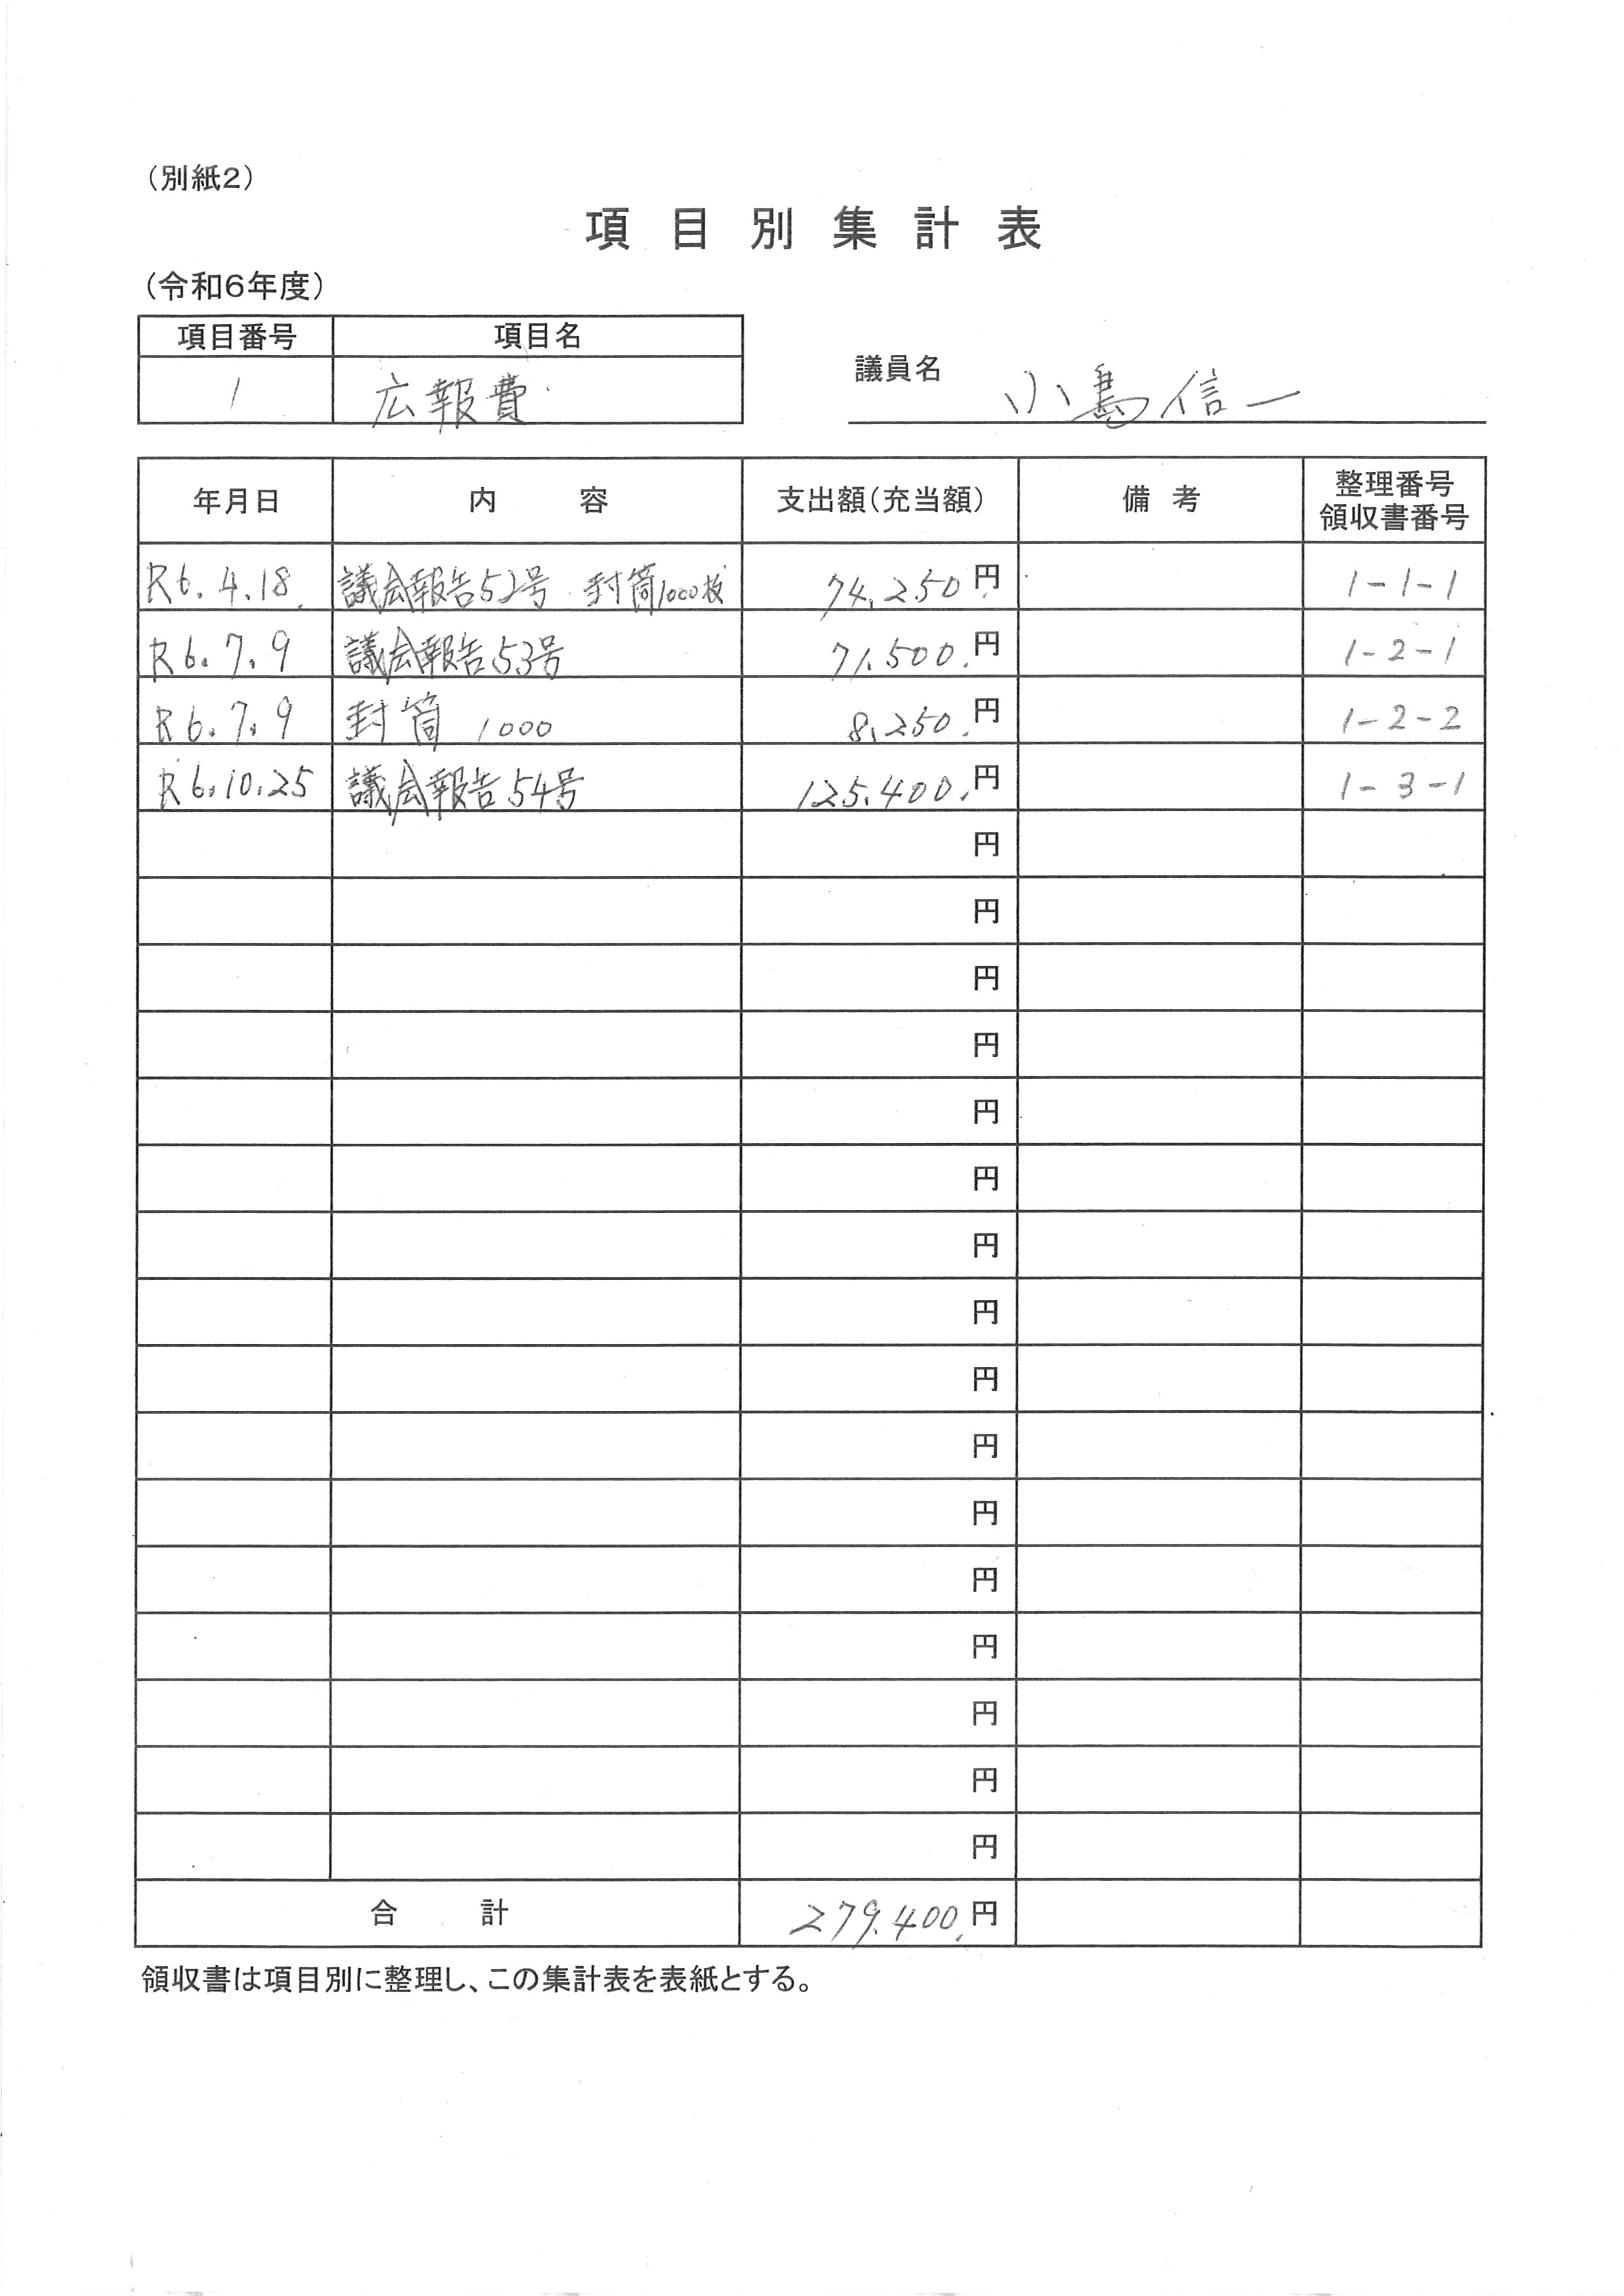 （別紙2）
項目別集計表
（令和6年度）
項目番号 項目名
1 広報費
議員名 小島信一
年月日 内容 支出額（充当額） 備考 整理番号 領収書番号
R6.4.18 議会報告52号 封筒1000枚 74,250円 1-1-1
R6.7.9 議会報告53号 71,500円 1-2-1
R6.7.9 封筒 1000 8,250円 1-2-2
R6.10.25 議会報告54号 125,400円 1-3-1
円
円
円
円
円
円
円
円
円
円
円
円
円
円
円
円
合計 279,400円
領収書は項目別に整理し、この集計表を表紙とする。